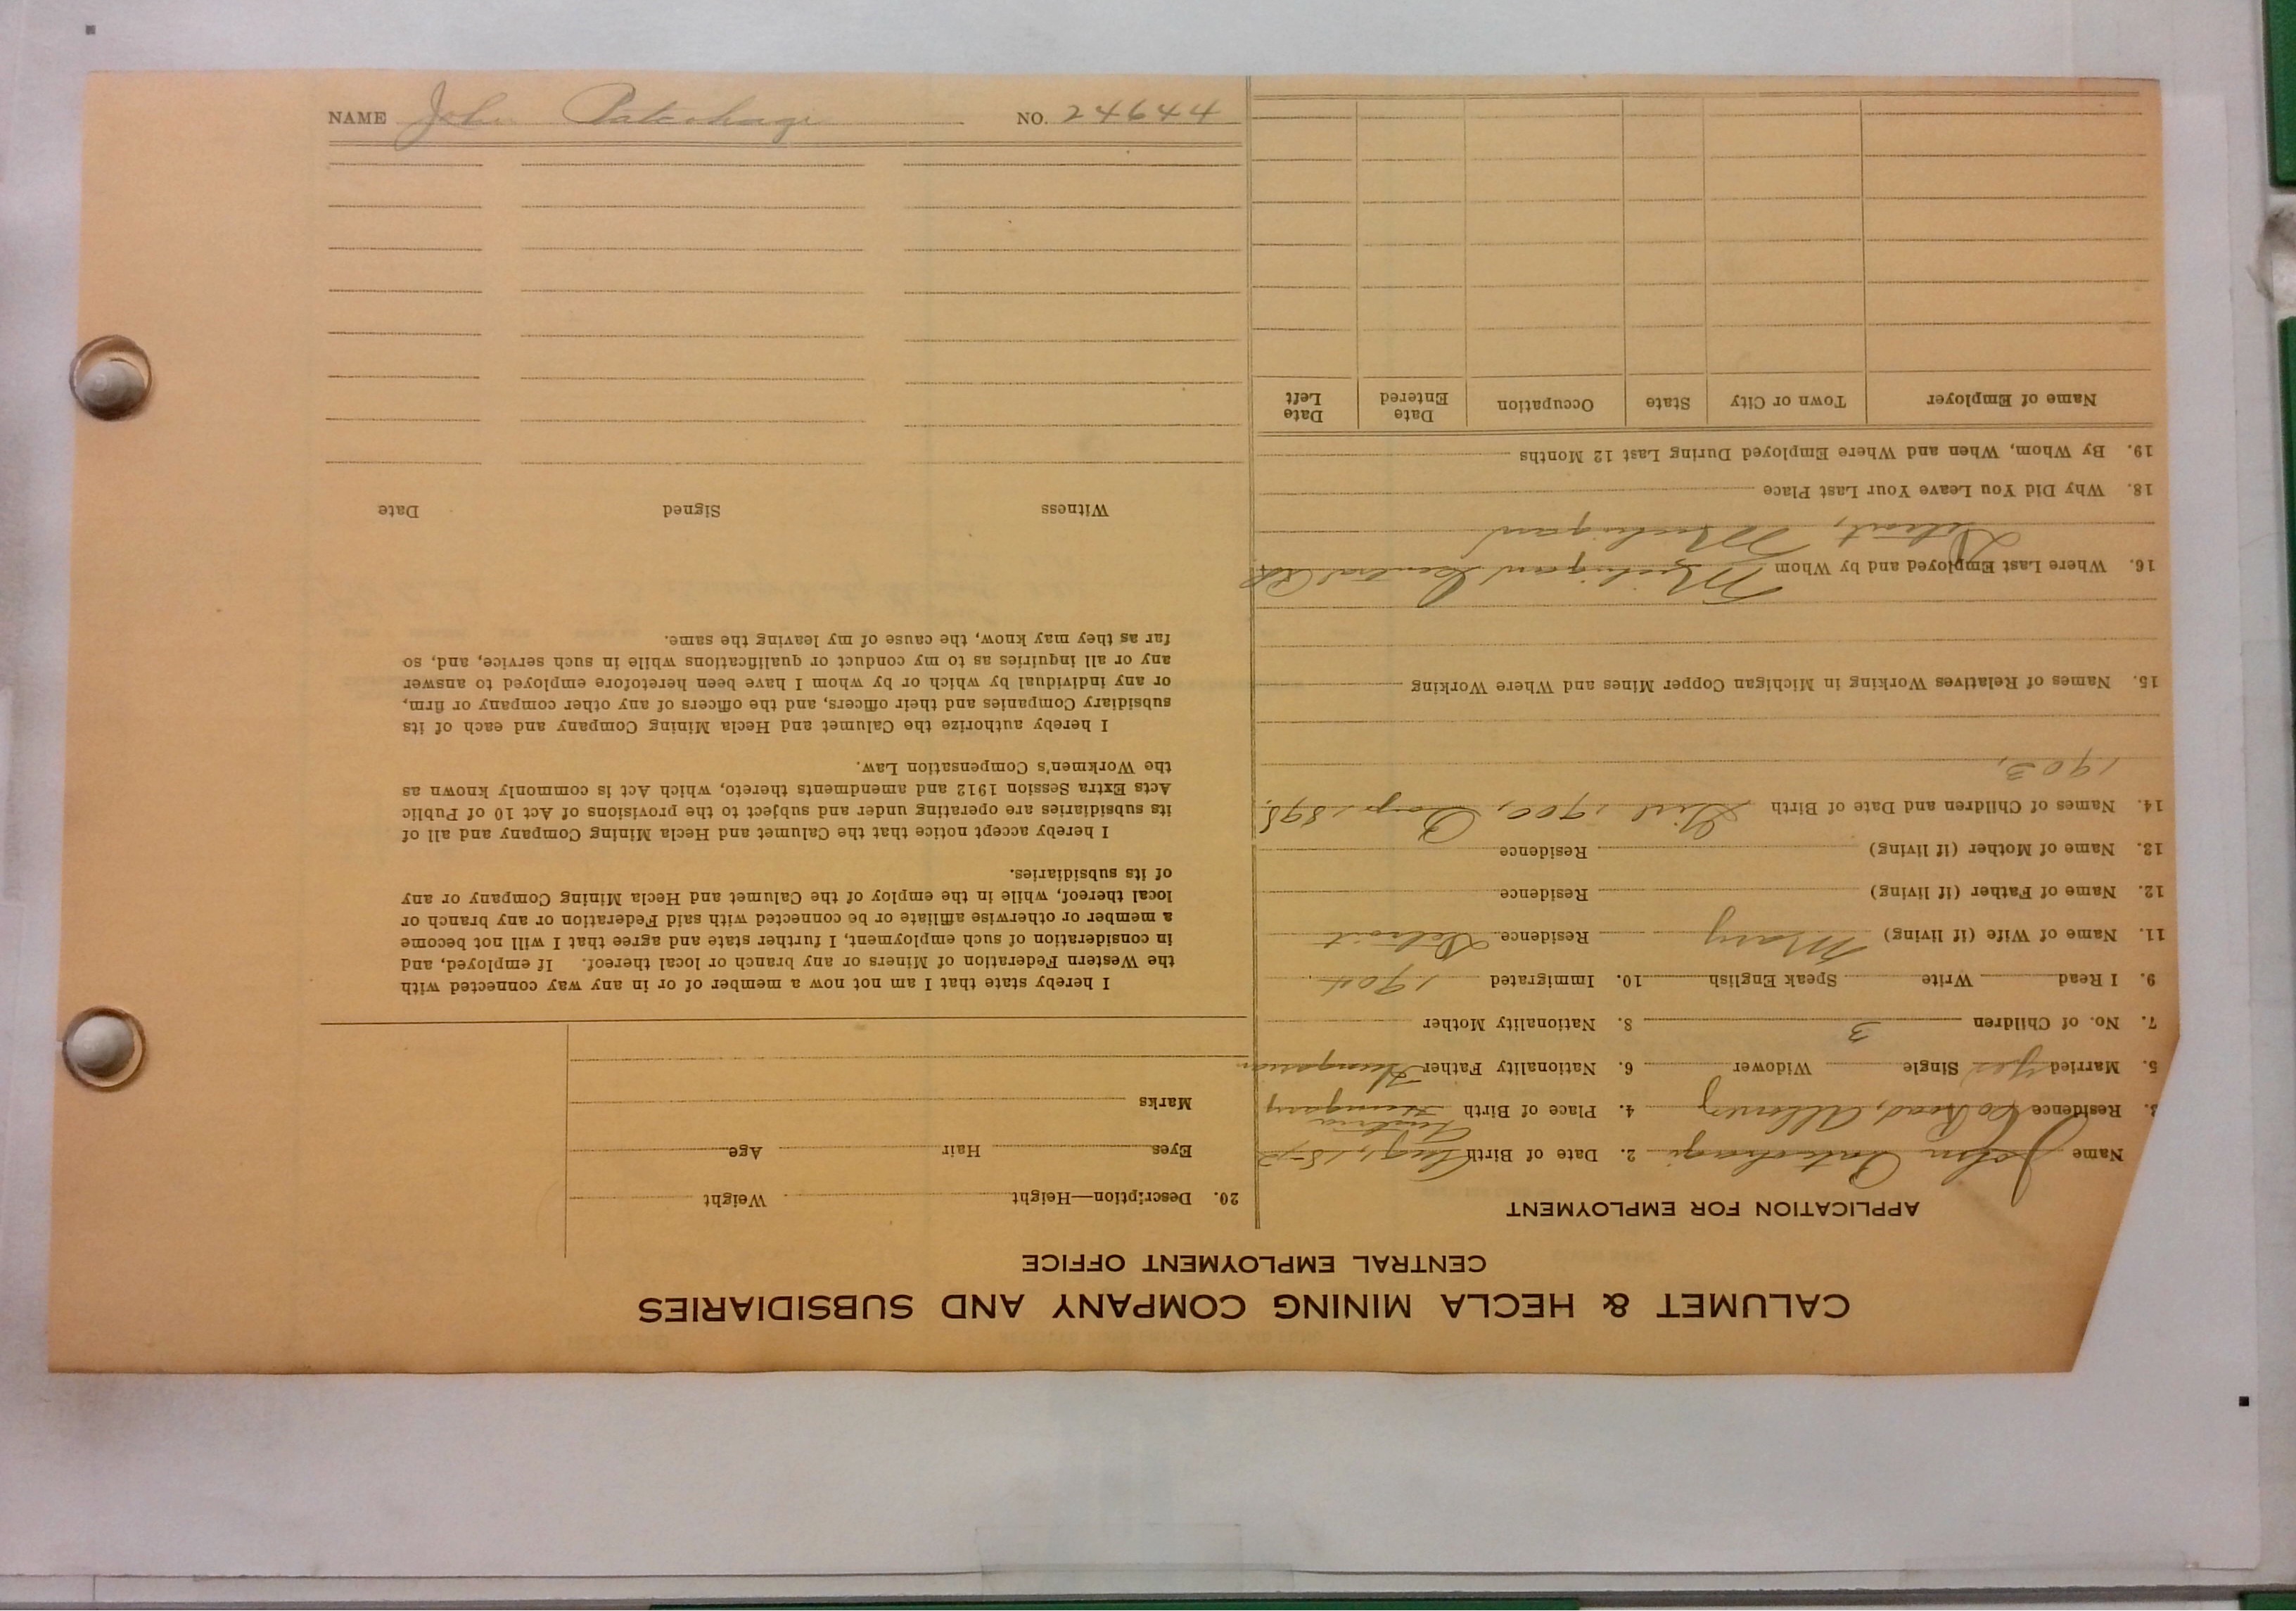 CALUMET & HECLA MINING COMPANY AND SUBSIDIARIES
CENTRAL EMPLOYMENT OFFICE
APPLICATION FOR EMPLOYMENT
Name John 2. Date of Birth Aug,
3. Residence Co Road, 4. Place of Birth Austria Hungary
5. Married Yes Single Widower 6. Nationality Father Hungarian
7. No. of Children 3 8. Nationality Mother
9. I Read Write Speak English 10. Immigrated 1904
11. Name of Wife (if living) Mary Residence Detroit
12. Name of Father (if living) Residence
13. Name of Mother (if living) Residence
14. Names of Children and Date of Birth Girl 1900, Boys 1898,
1903,
15. Names of Relatives Working in Michigan Copper Mines and Where Working
16. Where Last Employed and by Whom Michigan Central RR
Detroit, Michigan
18. Why Did You Leave Your Last Place
19. By Whom, When and Where Employed During Last 12 Months
Name of Employer Town or City State Occupation Date Entered Date Left
20. Description—Height Weight
Eyes Hair Age
Marks
I hereby state that I am not now a member of or in any way connected with
the Western Federation of Miners or any branch or local thereof. If employed, and
in consideration of such employment, I further state and agree that I will not become
a member or otherwise affiliate or be connected with said Federation or any branch or
local thereof, while in the employ of the Calumet and Hecla Mining Company or any
of its subsidiaries.
I hereby accept notice that the Calumet and Hecla Mining Company and all of
its subsidiaries are operating under and subject to the provisions of Act 10 of Public
Acts Extra Session 1912 and amendments thereto, which Act is commonly known as
the Workmen's Compensation Law.
I hereby authorize the Calumet and Hecla Mining Company and each of its
subsidiary Companies and their officers, and the officers of any other company or firm,
or any individual by which or by whom I have been heretofore employed to answer
any or all inquiries as to my conduct or qualifications while in such service, and, so
far as they may know, the cause of my leaving the same.
Witness Signed Date
NAME John NO. 24644